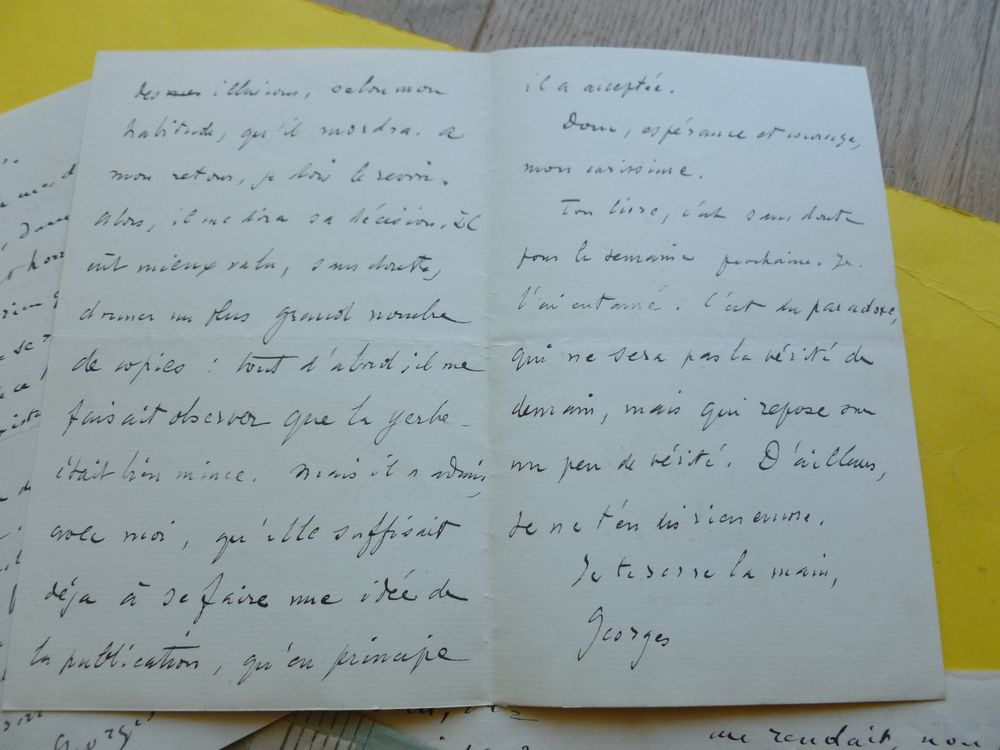 des illusions, selon mon
habitude, qu'il mordra. A
mon retour, je dois le revoir.
Alors, il me dira sa décision. Il
eût mieux valu, sans doute,
donner un plus grand nombre
de copies : tout d'abord, il me
faisait observer que la gerbe
était bien mince. Mais il a admis,
avec moi, qu'elle suffisait
déjà à se faire une idée de
la publication, qu'en principe
il a acceptée.
Donc, espérance et courage,
mon carissime.
Ton livre, c'est sans doute
pour la semaine prochaine. Je
l'ai entamé. C'est du paradoxe,
qui ne sera pas la vérité de
demain, mais qui repose sur
un peu de vérité. D'ailleurs,
je ne t'en dis rien encore.
Je te serre la main,
Georges
me rendait, non